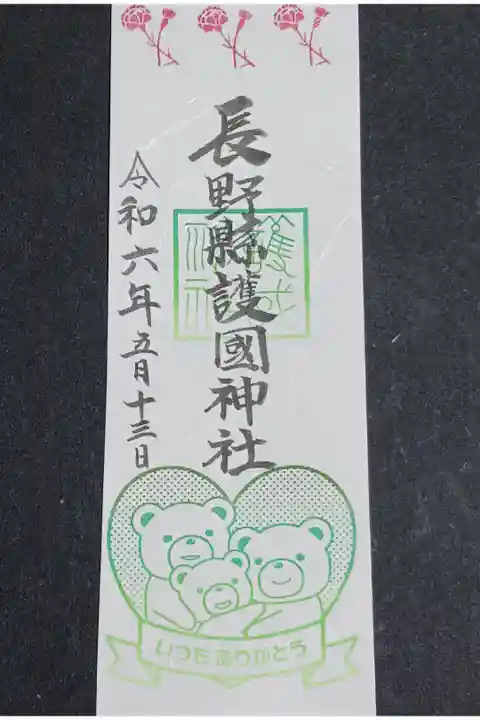 長野縣護國神社
令和六年五月十三日
いつもありがとう